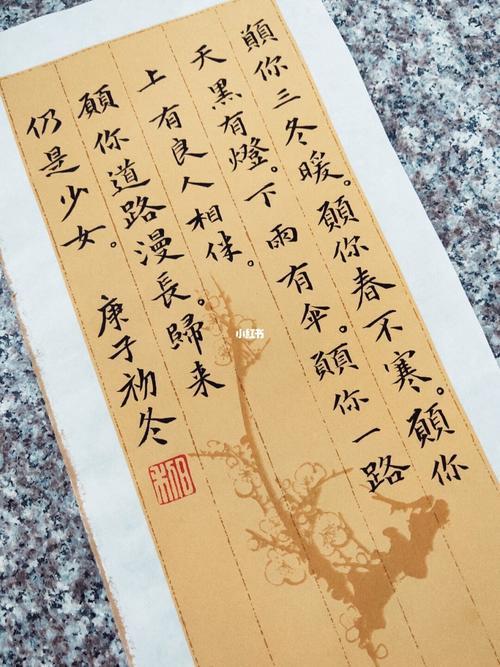 願你三冬暖。願你春不寒。願你
天黑有燈。下雨有伞。願你一路
上有良人相伴。
願你道路漫長。歸来
仍是少女。 庚子初冬
小红书